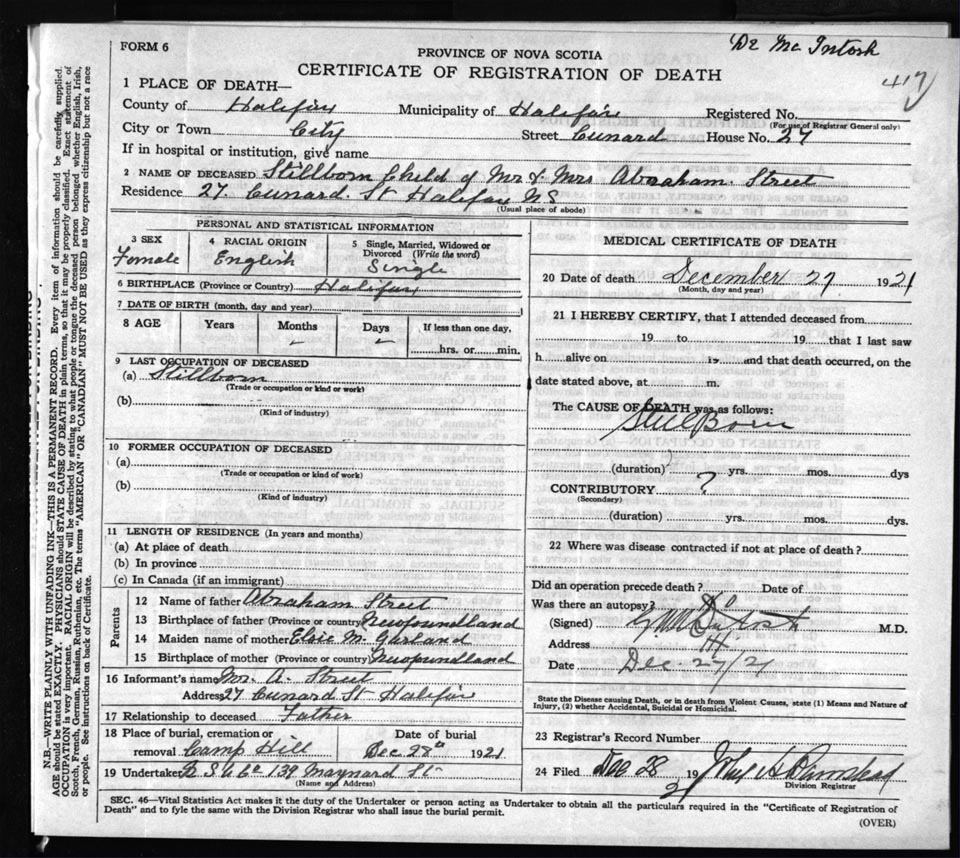 Dr Mc Intosh
FORM 6
PROVINCE OF NOVA SCOTIA
CERTIFICATE OF REGISTRATION OF DEATH
417
1 PLACE OF DEATH—
County of Halifax Municipality of Halifax Registered No.
(For use of Registrar General only)
City or Town City Street Cunard House No. 27
If in hospital or institution, give name
2 NAME OF DECEASED Stillborn Child of Mr & Mrs Abraham Street
Residence 27 Cunard St Halifax NS
(Usual place of abode)
PERSONAL AND STATISTICAL INFORMATION
3 SEX 4 RACIAL ORIGIN 5 Single, Married, Widowed or Divorced (Write the word)
Female English Single
6 BIRTHPLACE (Province or Country) Halifax
7 DATE OF BIRTH (month, day and year)
8 AGE Years Months Days If less than one day,
– – hrs. or min.
9 LAST OCCUPATION OF DECEASED
(a) Stillborn
(Trade or occupation or kind or work)
(b)
(Kind of industry)
10 FORMER OCCUPATION OF DECEASED
(a)
(Trade or occupation or kind of work)
(b)
(Kind of industry)
11 LENGTH OF RESIDENCE (In years and months)
(a) At place of death
(b) In province
(c) In Canada (if an immigrant)
Parents
12 Name of father Abraham Street
13 Birthplace of father (Province or country) Newfoundland
14 Maiden name of mother Elsie M. Garland
15 Birthplace of mother (Province or country) Newfoundland
16 Informant's name Mr. A. Street
Address 27 Cunard St Halifax
17 Relationship to deceased Father
18 Place of burial, cremation or Date of burial
removal Camp Hill Dec 28th 1921
19 Undertaker 139 Maynard St
(Name and Address)
MEDICAL CERTIFICATE OF DEATH
20 Date of death December 27 1921
(Month, day and year)
21 I HEREBY CERTIFY, that I attended deceased from
19 to 19 that I last saw
h alive on 19 and that death occurred, on the
date stated above, at m.
The CAUSE OF DEATH was as follows:
Still Born
(duration) yrs. mos. dys
CONTRIBUTORY ?
(Secondary)
(duration) yrs. mos. dys.
22 Where was disease contracted if not at place of death?
Did an operation precede death? Date of
Was there an autopsy? No
(Signed) McIntosh M.D.
Address
Date Dec. 27/21
State the Disease causing Death, or in death from Violent Causes, state (1) Means and Nature of
Injury, (2) whether Accidental, Suicidal or Homicidal.
23 Registrar's Record Number
24 Filed Dec 28 1921
Division Registrar
SEC. 46—Vital Statistics Act makes it the duty of the Undertaker or person acting as Undertaker to obtain all the particulars required in the "Certificate of Registration of
Death" and to fyle the same with the Division Registrar who shall issue the burial permit.
(OVER)
N.B.—WRITE PLAINLY WITH UNFADING INK—THIS IS A PERMANENT RECORD. Every item of information should be carefully supplied.
AGE should be stated EXACTLY. PHYSICIANS should STATE CAUSE OF DEATH in plain terms, so that it may be properly classified. Exact statement of
OCCUPATION is very important. RACIAL ORIGIN will be described by stating to what people or tongue the deceased person belonged whether English, Irish,
Scotch, French, German, Russian, Ruthenian, etc. The terms "AMERICAN" OR "CANADIAN" MUST NOT BE USED as they express citizenship but not a race
or people. See instructions on back of Certificate.